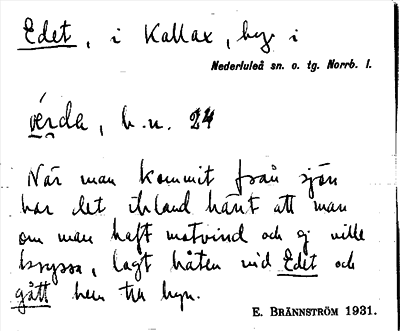 Edet, i Kallax, by i
Nederluleå sn. o. tg. Norrb. l.
vérda, h.n. 24
När man kommit från sjön
har det ibland hänt att man
om man haft motvind och ej ville
kryssa, lagt båten vid Edet och
gått hem till byn.
E. BRÄNNSTRÖM 1931.